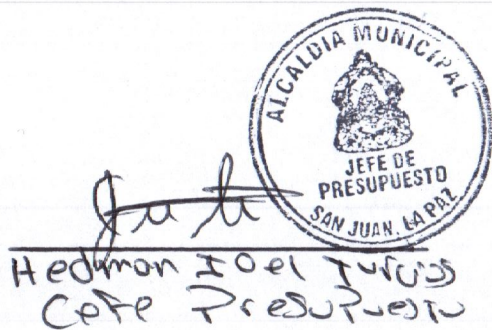 ALCALDIA MUNICIPAL
JEFE DE
PRESUPUESTO
SAN JUAN, LA PAZ
Hedman Joel Turcios
Cefe Presupuesto